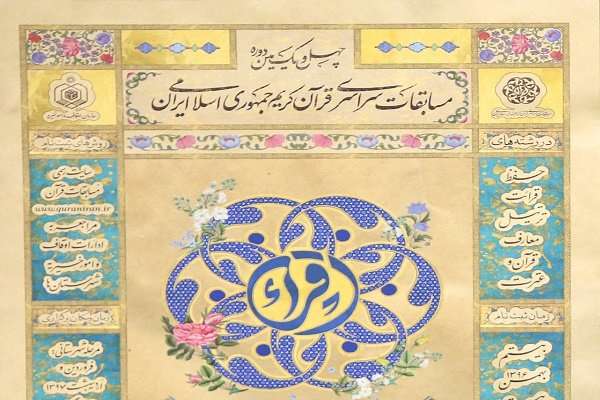 چهل و یکمین دوره
مسابقات سراسری قرآن کریم جمهوری اسلامی ایران
در رشته‌های
حفظ
قرائت
ترتیل
معارف
قرآن و
عترت
زمان ثبت نام
بیستم
بهمن
۱۳۹۶
اقراء
سایت رسمی
مسابقات قرآن
www.quraniran.ir
مراجعه به
ادارات اوقاف
و امور خیریه
شهرستان‌ها
مرحله شهرستانی:
فروردین و
اردیبهشت
۱۳۹۷